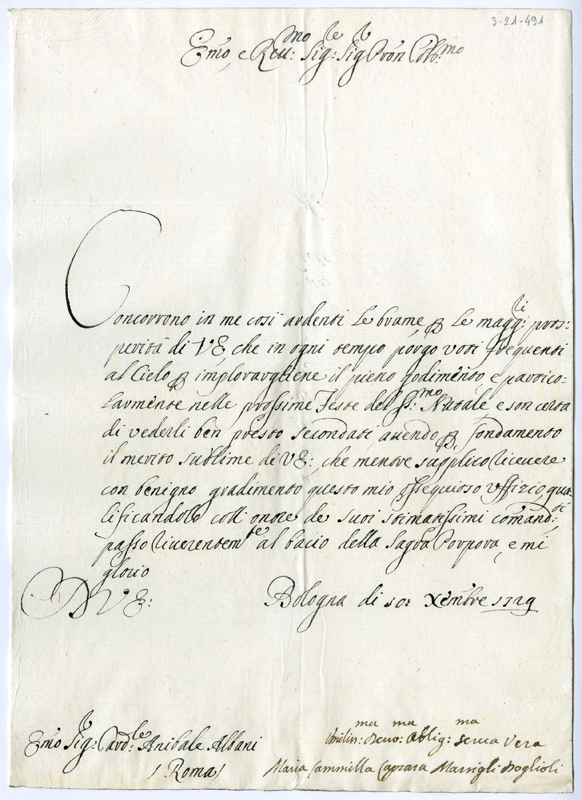 3-21-491
Emo, e Reu:mo Sig:re Sig:r Pron Colo:mo
Concorrono in me così ardenti le brame, p le magg:ri pros-
perità di VE che in ogni tempo porgo voti frequenti
al Cielo p implorargliene il pieno godimento, e partico-
larmente nelle prossime Feste del S:mo Natale e son certa
di vederli ben presto secondati avendo p fondamento
il merito sublime di VE:, che mentre supplico ricevere
con benigno gradimento questo mio ossequioso Uffizio, qua
lificandolo coll'onore de suoi stimatissimi comandi:
passo riverentem:te al bacio della Sagra Porpora, e mi
glorio
D VE:
Bologna di 10: Xembre 1729
Emo Sig:r Card:le Anibale Albani
(Roma)
Umiliss:ma Deuo:ma Oblig:ma serua Vera
Maria Cammilla Caprara Marsigli Boglioli